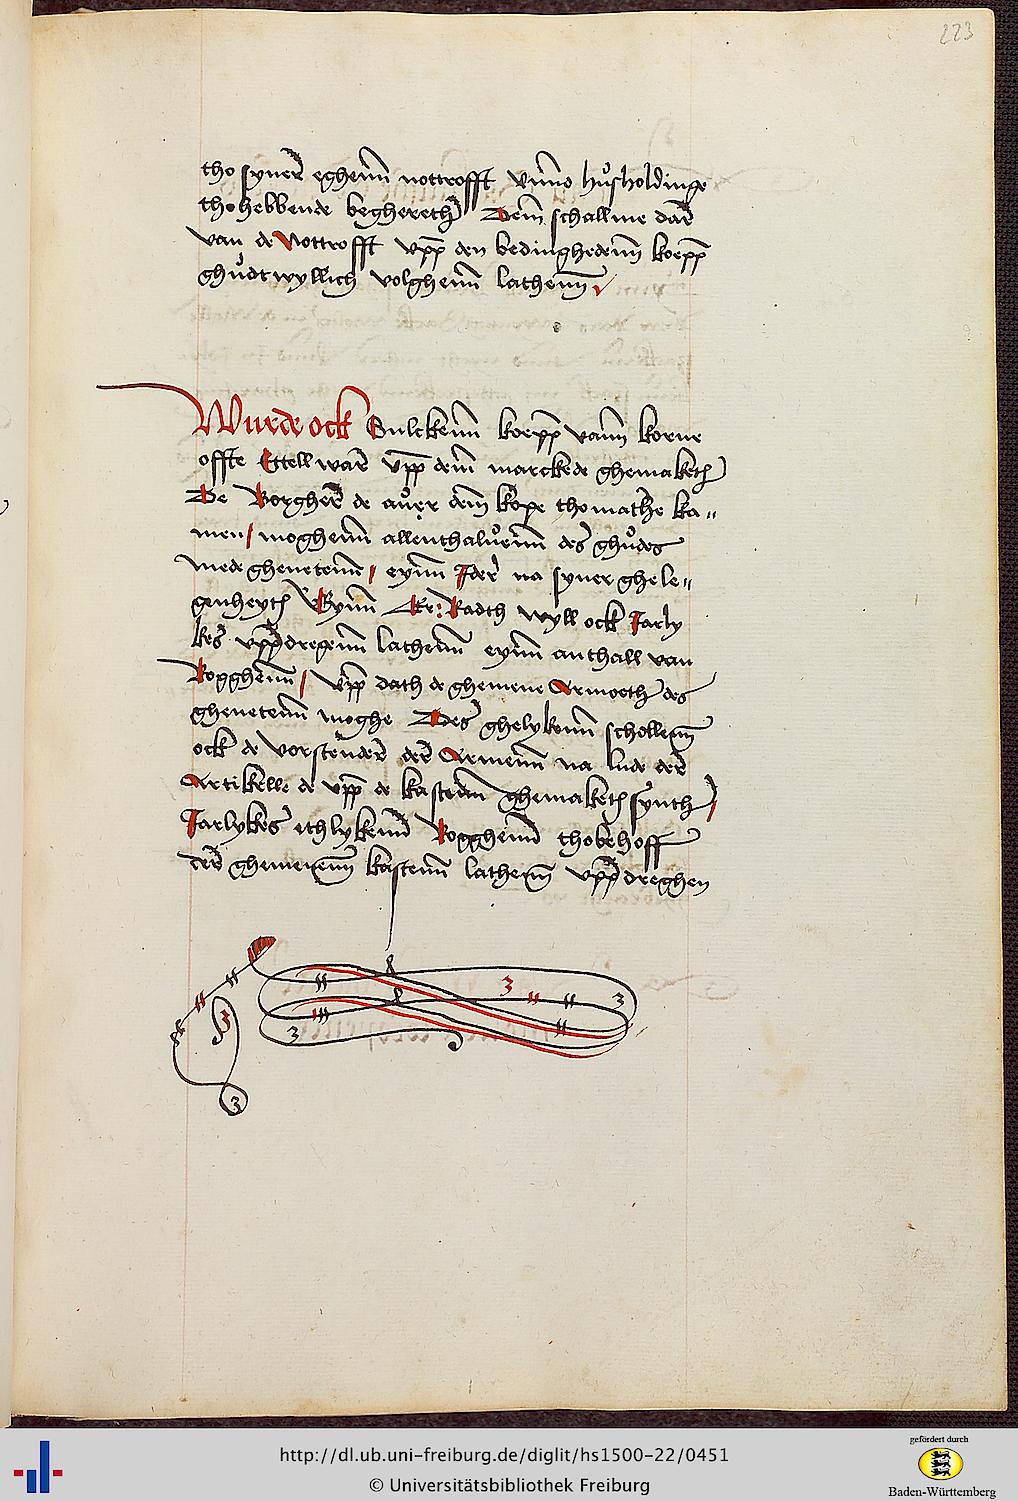 223
tho syner eghenn nottrofft vnno hůsholdinge
tho hebbende beghereth Dem schallme dar
van de Nottrofft vpp den bedinghedenn koepp
ghůdtwyllich volghenn lathenn
Wurde ock Sulckenn koepp vann korne
offte Ettell ware vpp dem marckede ghemaketh
De Borgher de auer dem kope thomathe ka=
men / moghenn allenthaluenn des ghůdes
mede ghenetenn / eynn Ider na syner ghele=
genheyth Eynn Er: Radth wyll ock Jarly
kes vppdregenn lathenn eynn anthall van
Rogghenn / vpp dath de ghemene Armoeth des
ghenetenn moghe Des ghelykenn schollenn
ock de vorstender der Armenn na lude der
Artikelle de vpp de kastenn ghemaketh synth /
Jarlykes ethlykenn Rogghenn thobehoff
der ghemenenn kastenn lathenn vppdreghen
http://dl.ub.uni-freiburg.de/diglit/hs1500-22/0451
© Universitätsbibliothek Freiburg
gefördert durch
Baden-Württemberg